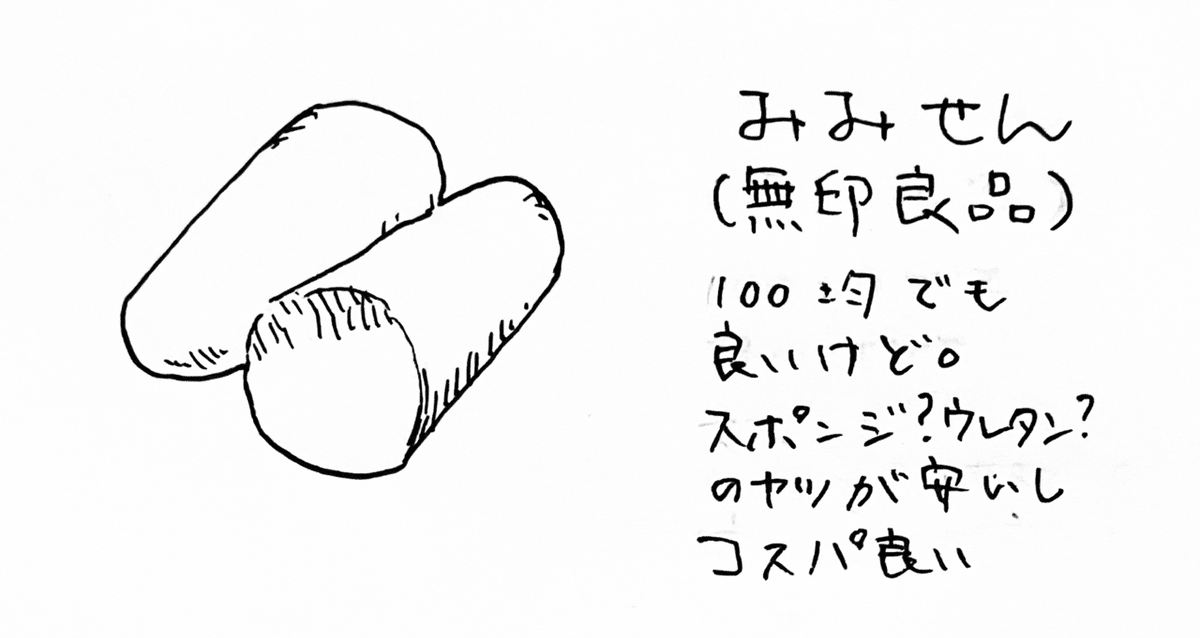 みみせん
(無印良品)
100均でも
良いけど。
スポンジ?ウレタン?
のヤツが安いし
コスパ良い